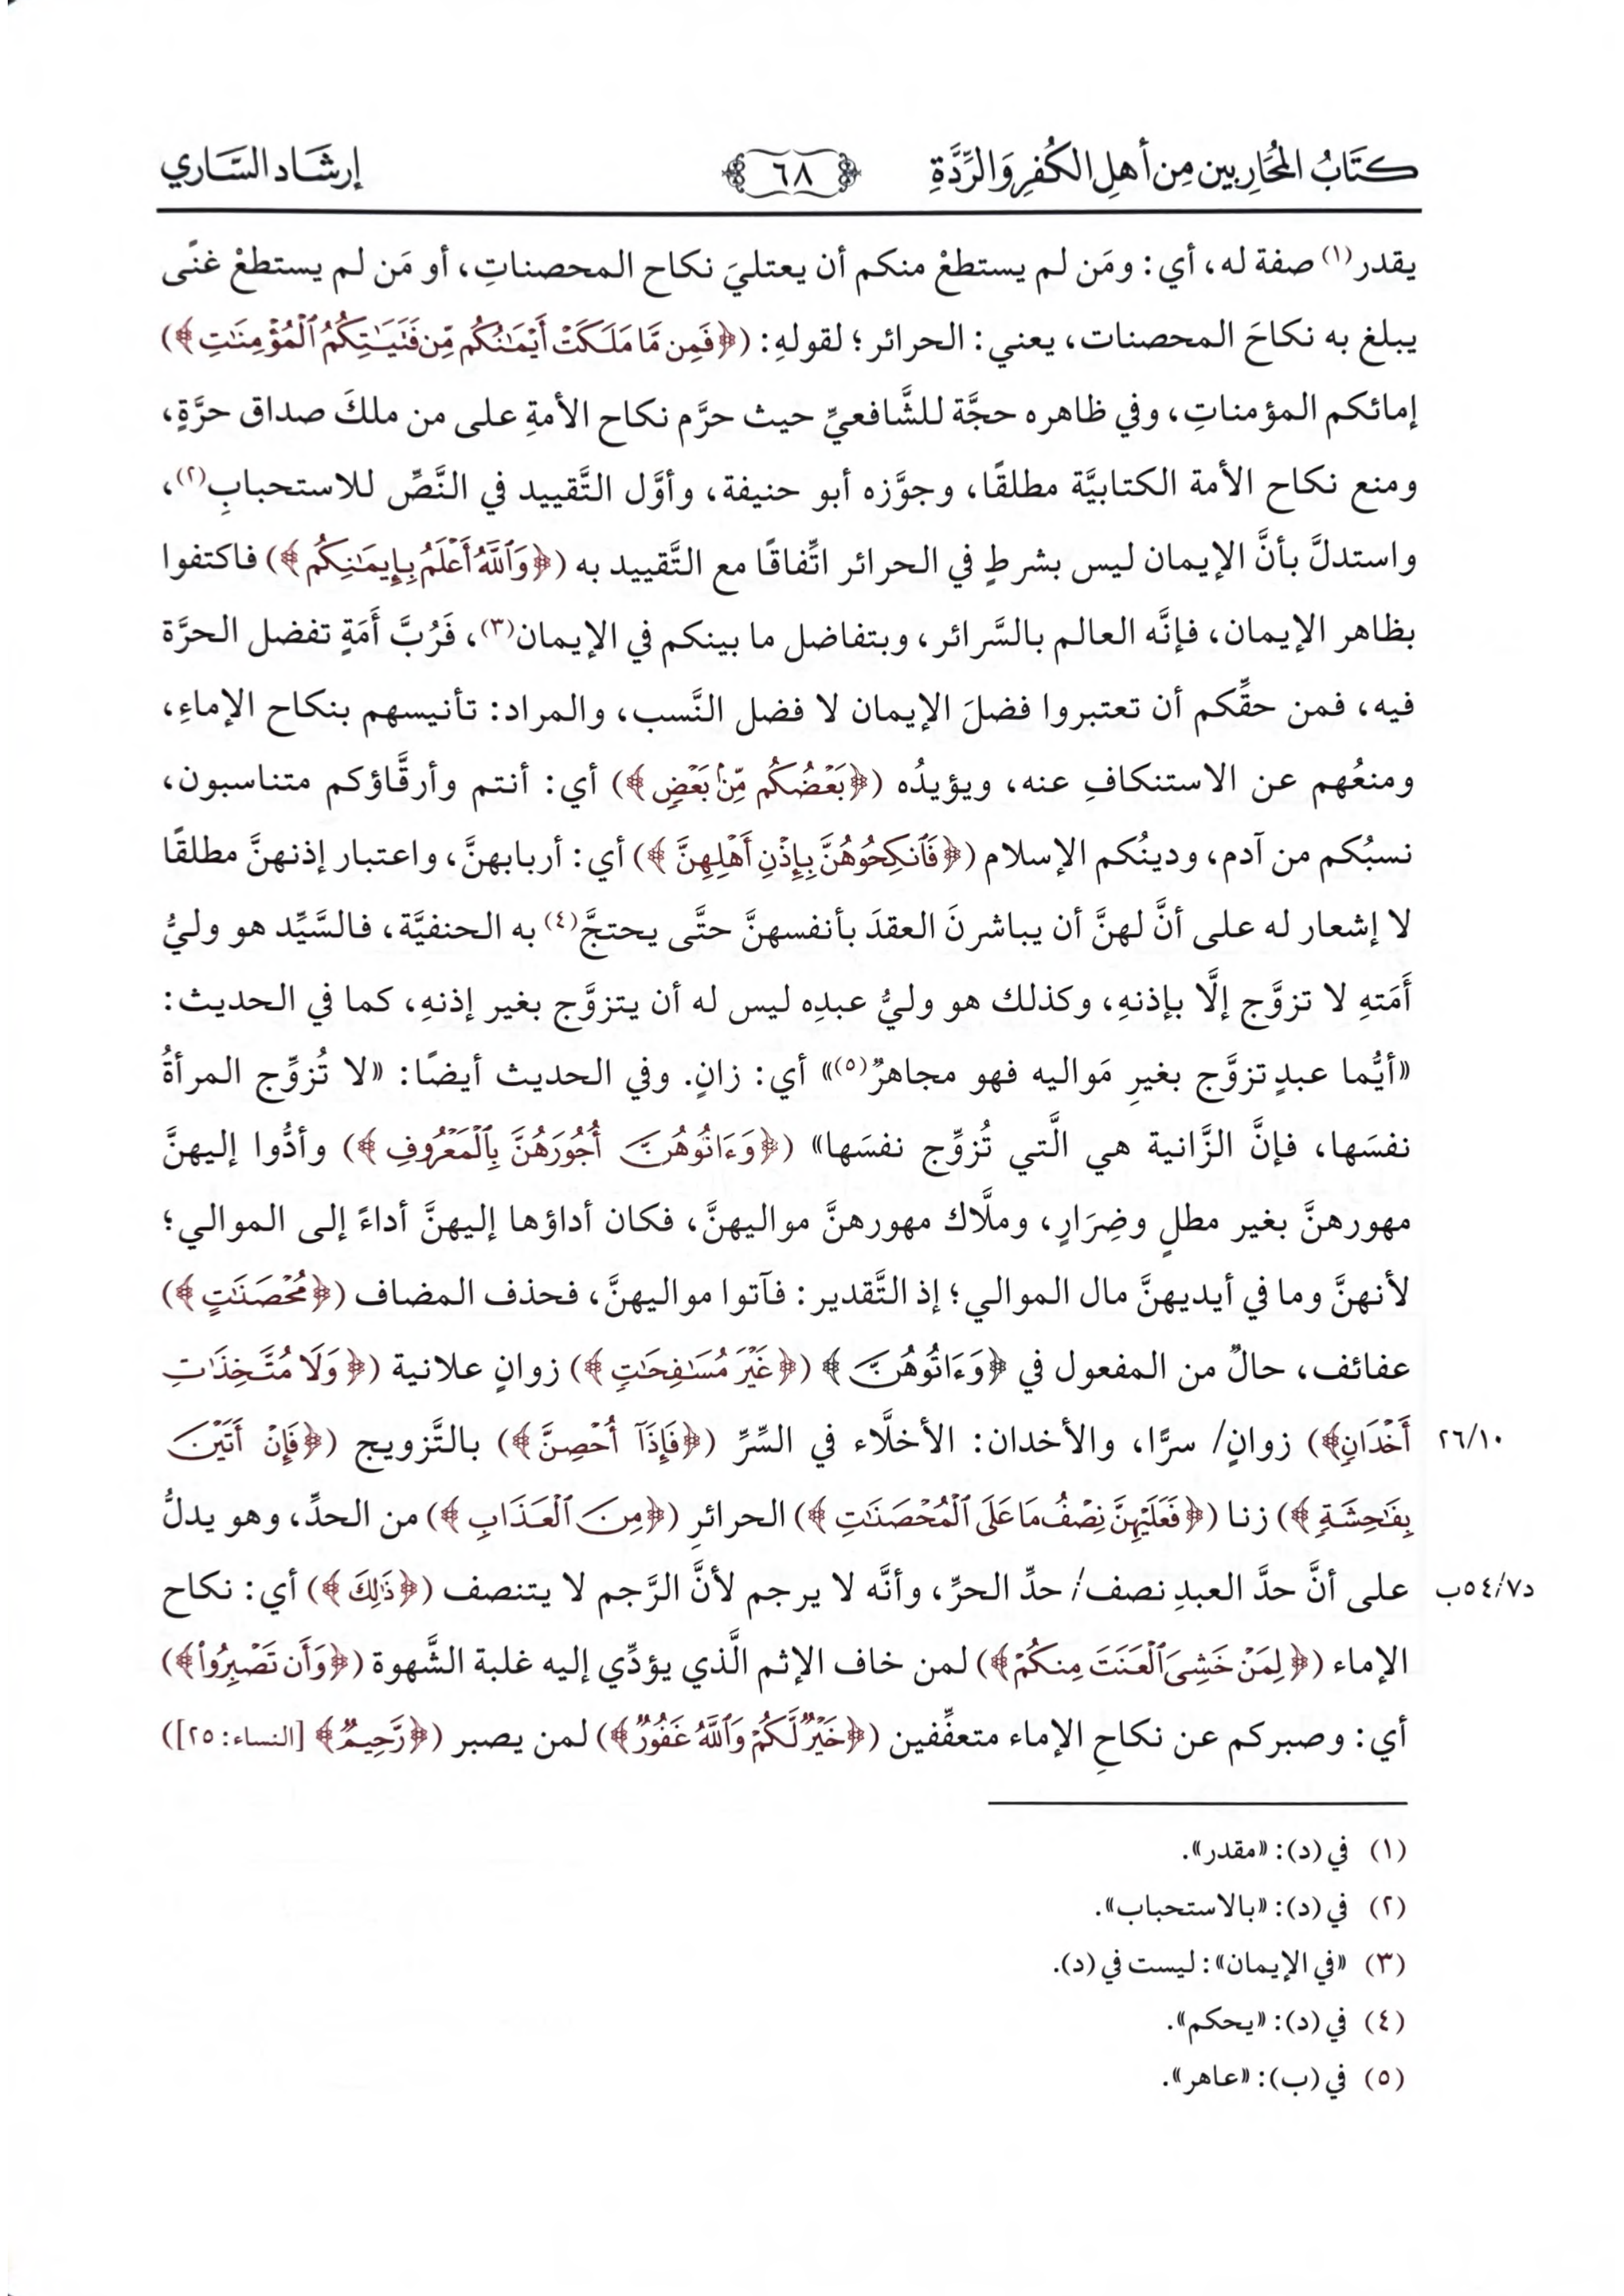 كتاب المحاربين من أهل الكفر والردة ٦٨ إرشاد الساري
يقدر(١) صفة له، أي: ومَن لم يستطعْ منكم أن يعتليَ نكاح المحصناتِ، أو مَن لم يستطعْ غنًى
يبلغ به نكاحَ المحصنات، يعني: الحرائر؛ لقولهِ: (﴿فَمِن مَّا مَلَكَتْ أَيْمَٰنُكُم مِّن فَتَيَٰتِكُمُ ٱلْمُؤْمِنَٰتِ﴾)
إمائكم المؤمناتِ، وفي ظاهره حجَّة للشَّافعيِّ حيث حرَّم نكاح الأمةِ على من ملكَ صداق حرَّةٍ،
ومنع نكاح الأمة الكتابيَّة مطلقًا، وجوَّزه أبو حنيفة، وأوَّل التَّقييد في النَّصِّ للاستحبابِ(٢)،
واستدلَّ بأنَّ الإيمان ليس بشرطٍ في الحرائر اتِّفاقًا مع التَّقييد به (﴿وَٱللَّهُ أَعْلَمُ بِإِيمَٰنِكُم﴾) فاكتفوا
بظاهر الإيمان، فإنَّه العالم بالسَّرائر، وبتفاضل ما بينكم في الإيمان(٣)، فَرُبَّ أَمَةٍ تفضل الحرَّة
فيه، فمن حقِّكم أن تعتبروا فضلَ الإيمان لا فضل النَّسب، والمراد: تأنيسهم بنكاح الإماءِ،
ومنعُهم عن الاستنكافِ عنه، ويؤيدُه (﴿بَعْضُكُم مِّنۢ بَعْضٍ﴾) أي: أنتم وأرقَّاؤكم متناسبون،
نسبُكم من آدم، ودينُكم الإسلام (﴿فَٱنكِحُوهُنَّ بِإِذْنِ أَهْلِهِنَّ﴾) أي: أربابهنَّ، واعتبار إذنهنَّ مطلقًا
لا إشعار له على أنَّ لهنَّ أن يباشرنَ العقدَ بأنفسهنَّ حتَّى يحتجَّ(٤) به الحنفيَّة، فالسَّيِّد هو وليُّ
أَمَتهِ لا تزوَّج إلَّا بإذنهِ، وكذلك هو وليُّ عبدِه ليس له أن يتزوَّج بغير إذنهِ، كما في الحديث:
«أيُّما عبدٍ تزوَّج بغيرِ مَواليه فهو مجاهرٌ(٥)» أي: زانٍ. وفي الحديث أيضًا: «لا تُزوِّج المرأةُ
نفسَها، فإنَّ الزَّانية هي الَّتي تُزوِّج نفسَها» (﴿وَءَاتُوهُنَّ أُجُورَهُنَّ بِٱلْمَعْرُوفِ﴾) وأدُّوا إليهنَّ
مهورهنَّ بغير مطلٍ وضِرَارٍ، وملَّاك مهورهنَّ مواليهنَّ، فكان أداؤها إليهنَّ أداءً إلى الموالي؛
لأنهنَّ وما في أيديهنَّ مال الموالي؛ إذ التَّقدير: فآتوا مواليهنَّ، فحذف المضاف (﴿مُحْصَنَٰتٍ﴾)
عفائف، حالٌ من المفعول في ﴿وَءَاتُوهُنَّ﴾ (﴿غَيْرَ مُسَٰفِحَٰتٍ﴾) زوانٍ علانية (﴿وَلَا مُتَّخِذَٰتِ
أَخْدَانٍ﴾) زوانٍ/ سرًّا، والأخدان: الأخلَّاء في السِّرِّ (﴿فَإِذَآ أُحْصِنَّ﴾) بالتَّزويج (﴿فَإِنْ أَتَيْنَ ٢٦/١٠
بِفَٰحِشَةٍ﴾) زنا (﴿فَعَلَيْهِنَّ نِصْفُ مَا عَلَى ٱلْمُحْصَنَٰتِ﴾) الحرائرِ (﴿مِنَ ٱلْعَذَابِ﴾) من الحدِّ، وهو يدلُّ
على أنَّ حدَّ العبدِ نصف/ حدِّ الحرِّ، وأنَّه لا يرجم لأنَّ الرَّجم لا يتنصف (﴿ذَٰلِكَ﴾) أي: نكاح د٥٤/٧ب
الإماء (﴿لِمَنْ خَشِىَ ٱلْعَنَتَ مِنكُمْ﴾) لمن خاف الإثم الَّذي يؤدِّي إليه غلبة الشَّهوة (﴿وَأَن تَصْبِرُوا۟﴾)
أي: وصبركم عن نكاحِ الإماء متعفِّفين (﴿خَيْرٌ لَّكُمْ وَٱللَّهُ غَفُورٌ﴾) لمن يصبر (﴿رَّحِيمٌ﴾ [النساء: ٢٥])
(١) في (د): «مقدر».
(٢) في (د): «بالاستحباب».
(٣) «في الإيمان»: ليست في (د).
(٤) في (د): «يحكم».
(٥) في (ب): «عاهر».